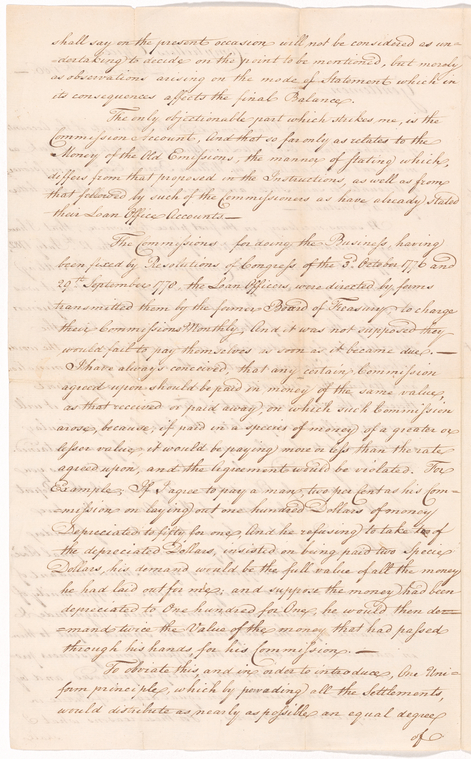 shall say on the present occasion will not be considered as un=
=dertaking to decide on the point to be mentioned, but merely
as observations arising on the mode of Statement which in
its consequences affects the final Balance.
The only objectionable part which strikes me, is the
Commission account, And that so far only as relates to the
Money of the Old Emissions, the manner of stating which,
differs from that proposed in the Instructions, as well as from
that followed by such of the Commissioners as have already Stated
their Loan Office Accounts.—
The Commissions, for doing the Business, having
been fixed by Resolutions of Congress of the 3d. October 1776 and
29th. September 1778, the Loan Officers, were directed by forms
transmitted them by the former Board of Treasury, to charge
their Commissions Monthly; And it was not supposed they
would fail to pay themselves as soon as it became due.—
I have always conceived, that any certain Commission
agreed upon should be paid in money of the same value,
as that received or paid away, on which such Commission
arose, because, if paid in a species of money of a greater or
lesser value, it would be paying more or less than the rate
agreed upon, and the Agreement would be violated. For
Example, If I agree to pay a man, two per Cent as his Com=
=mission on laying out one hundred Dollars of money
Depreciated to fifty for one, And he refusing to take two of
the depreciated Dollars, insisted on being paid two Specie
Dollars, his demand would be the full value of all the money
he had laid out for me; and suppose the money had been
depreciated to One hundred for One, he would then de=
=mand twice the Value of the money that had passed
through his hands, for his Commission.—
To obviate this, and in order to introduce, One Uni=
form principle, which by pervading all the Settlements,
would distribute as nearly as possible an equal degree
of